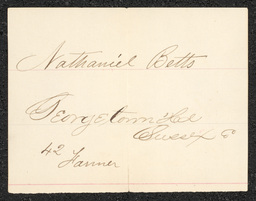 Nathaniel Betts
Georgetown Del
Sussex C
42
Farmer